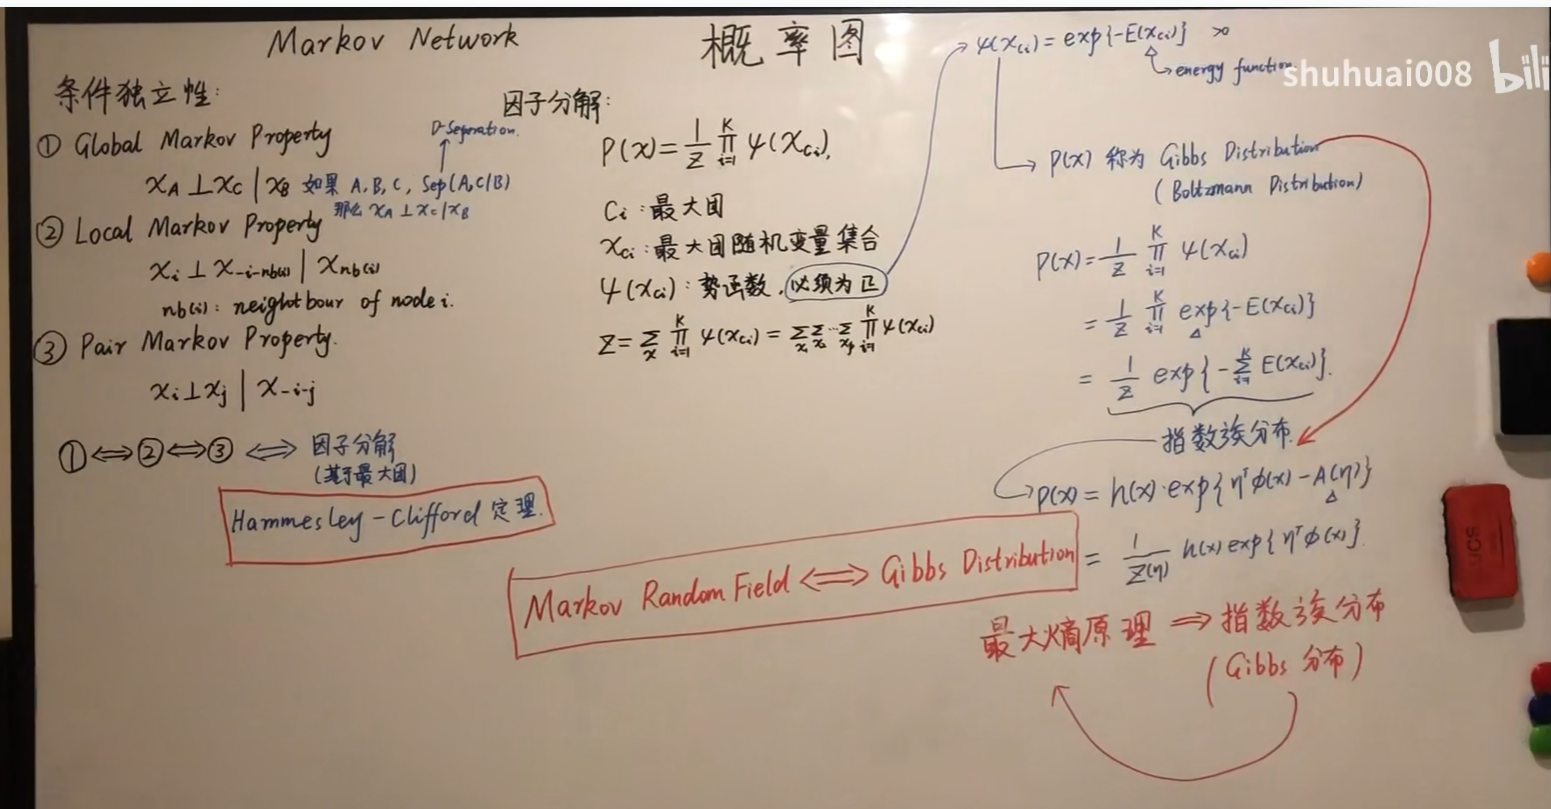 Markov Network
概率图
条件独立性:
① Global Markov Property
D-Seperation.
x_A ⊥ x_C | x_B 如果 A, B, C, Sep(A, C|B)
那么 x_A ⊥ x_C | x_B
② Local Markov Property
x_i ⊥ x_{-i-nb(i)} | x_{nb(i)}
nb(i): neightbour of node i.
③ Pair Markov Property.
x_i ⊥ x_j | x_{-i-j}
① ⟺ ② ⟺ ③ ⟺ 因子分解
(基于最大团)
Hammesley-Clifford 定理.
因子分解:
P(x) = 1/Z ∏_{i=1}^{K} ψ(x_{ci}),
Ci: 最大团
x_{ci}: 最大团随机变量集合
ψ(x_{ci}): 势函数, 必须为正
Z = ∑_x ∏_{i=1}^{K} ψ(x_{ci}) = ∑_{x₁} ∑_{x₂} … ∑_{x_p} ∏_{i=1}^{K} ψ(x_{ci})
ψ(x_{ci}) = exp{-E(x_{ci})} >0
energy function
shuhuai008 bili
P(x) 称为 Gibbs Distribution
(Boltzmann Distribution)
P(x) = 1/Z ∏_{i=1}^{K} ψ(x_{ci})
= 1/Z ∏_{i=1}^{K} exp{-E(x_{ci})}
= 1/Z exp{-∑_{i=1}^{K} E(x_{ci})}.
指数族分布.
P(x) = h(x)·exp{η^T φ(x) - A(η)}
= 1/Z(η) h(x) exp{η^T φ(x)}.
Markov Random Field ⟺ Gibbs Distribution
最大熵原理 ⟹ 指数族分布
(Gibbs 分布)